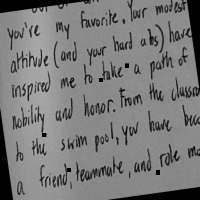 you're my favorite. Your modest
attitude (and your hard abs) have
inspired me to take a path of
nobility and honor. From the
to the swim pool, you have
a friend, teammate, and role